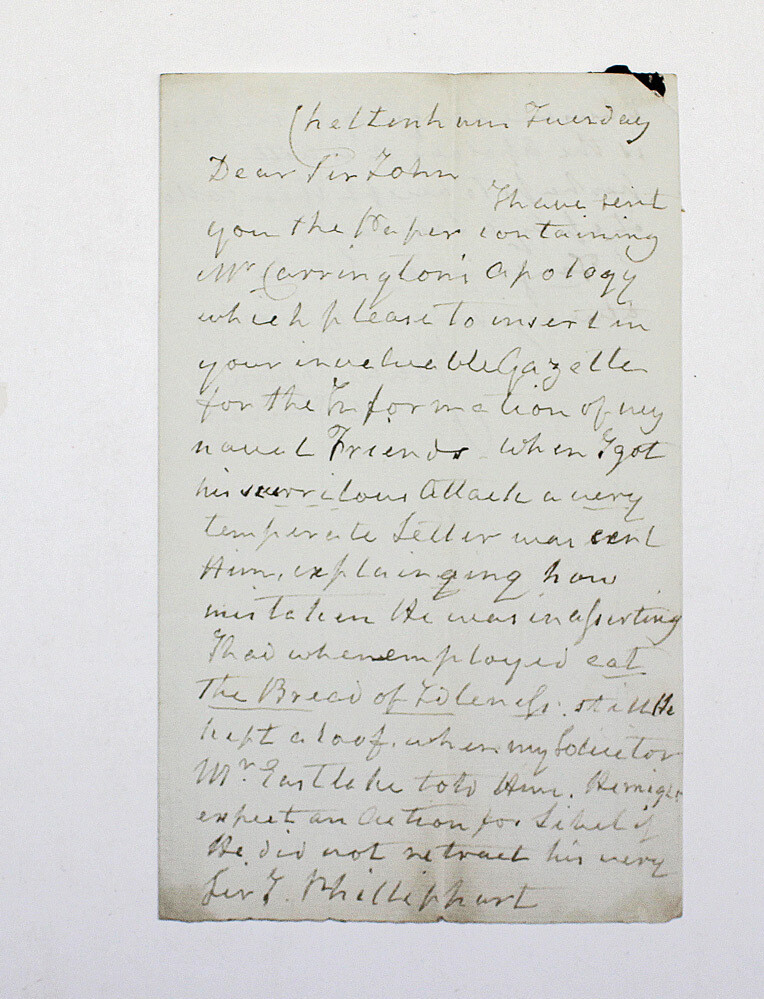 Cheltenham Tuesday
Dear Sir John
I have sent
you the Paper containing
Mr Carrington's Apology
which please to insert in
your invaluable Gazette
for the Information of my
naval Friends When I got
his scurrilous Attack a very
temperate Letter was sent
Him, explainging how
mistaken He was in asserting
I had when employed eat
The Bread of Idleness. still He
kept aloof. when my Solicitor
Mr Eastlake told Him. He might
expect an Action for Libel if
He did not retract his very
Sir J. Phillipphart